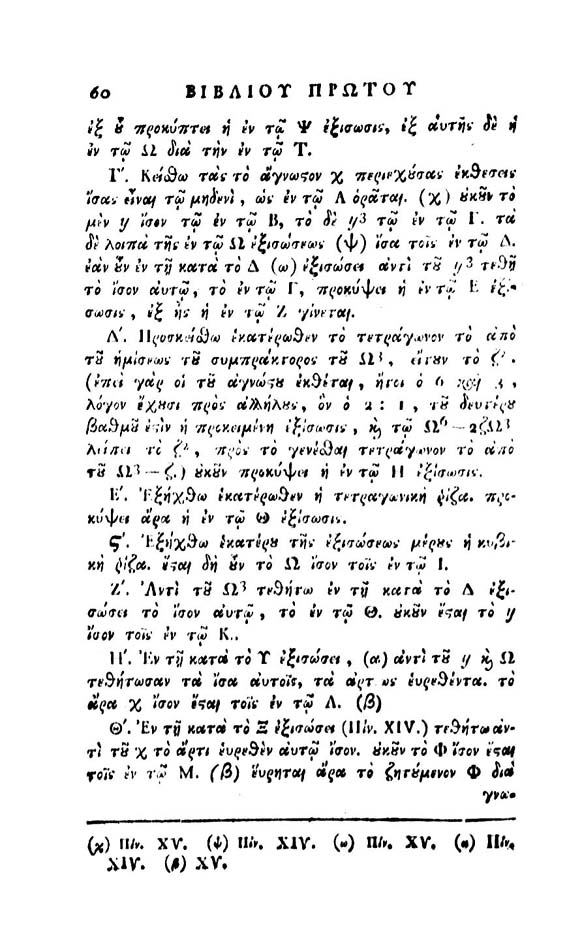 60 ΒΙΒΛΙΟΥ ΠΡΩΤΟΥ
ἐξ ȣ̔͂ προκύπτει ἡ ἐν τῷ Ψ ἐξίσωσις, ἐξ ἀυτῆς δὲ ἡ
ἐν τῷ Ω διὰ τὴν ἐν τῷ Τ.
Γ΄. Κείϑω τὰς τὸ ἄγνωςον χ περιεχȣ́σας ἐκθέσεις
ἴσας εἶναι τῷ μηδενὶ, ὡς ἐν τῷ Λ ὁρᾶται. (χ) ȣ̓κȣ͂ν τὸ
μὲν y ἴσον τῷ ἐν τῷ Β, τὸ δὲ y3 τῷ ἐν τῷ Γ. τὰ
δὲ λοιπὰ τῆς ἐν τῷ Ω ἐξισώσεως (ψ) ἴσα τοῖς ἐν τῷ Δ.
ἐὰν ȣ̓͂ν ἐν τῇ κατὰ τὸ Δ (ω) ἐξισώσει ἀντὶ τȣ͂ y3 τεθῇ
τὸ ἴσον αὐτῷ, τὸ ἐν τῷ Γ, προκύψει ἡ ἐν τῷ Ε ἐξί-
σωσις, ἐξ ἧς ἡ ἐν τῷ Ζ γίνεται.
Δ΄. Προσκείϑω ἑκατέρωθεν τὸ τετράγωνον τὸ ἀπὸ
τȣ͂ ἡμίσεως τȣ͂ συμπράκτορος τȣ͂ Ω3, ἤτȣν τὸ ζ2.
(ἐπεὶ γὰρ οἱ τȣ͂ ἀγνώςȣ ἐκθέται, ἤτοι ὁ 6 καὶ 3,
λόγον ἔχȣσι πρὸς ἀλλήλȣς, ὃν ὁ 2 : 1, τȣ͂ δευτέρȣ
βαθμȣ͂ ἐςὶν ἡ προκειμένη ἐξίσωσις, κ̀ τῷ Ω6 — 2ζΩ3
λείπει τὸ ζ2, πρὸς τὸ γενέϑαι τετράγωνον τὸ ἀπὸ
τȣ͂ Ω3 — ζ.) ȣ̓κȣ͂ν προκύψει ἡ ἐν τῷ Η ἐξίσωσις.
Ε΄. Ἐξήχϑω ἑκατέρωθεν ἡ τετραγωνικὴ ῥίζα. προ-
κύψει ἄρα ἡ ἐν τῷ Θ ἐξίσωσις.
Ϛ΄. Ἐξήχϑω ἑκατέρȣ τῆς ἐξισώσεως μέρȣς ἡ κυβι-
κὴ ῥίζα. ἔςαι δὴ ȣ̓͂ν τὸ Ω ἴσον τοῖς ἐν τῷ Ι.
Ζ΄. Ἀντὶ τȣ͂ Ω3 τεθήτω ἐν τῇ κατὰ τὸ Δ ἐξι-
σώσει τὸ ἴσον αὐτῷ, τὸ ἐν τῷ Θ. ȣ̓κȣ͂ν ἔςαι τὸ y
ἴσον τοῖς ἐν τῷ Κ.
Η΄. Ἐν τῇ κατὰ τὸ Υ ἐξισώσει, (α) ἀντὶ τȣ͂ y κ̀ Ω
τεθήτωσαν τὰ ἴσα αὐτοῖς, τὰ ἄρτι ὡς εὑρεθέντα. τὸ
ἄρα χ ἴσον ἔςαι τοῖς ἐν τῷ Λ. (β)
Θ΄. Ἐν τῇ κατὰ τὸ Ξ ἐξισώσει (Πίν. XIV.) τεθήτω ἀν-
τὶ τȣ͂ χ τὸ ἄρτι εὑρεθὲν αὐτῷ ἴσον. ȣ̓κȣ͂ν τὸ Φ ἴσον ἔςαι
τοῖς ἐν τῷ Μ. (β) εὕρηται ἄρα τὸ ζητȣ́μενον Φ διὰ
γνω-
(χ) Πίν. XV. (ψ) Πίν. XIV. (ω) Πίν. XV. (α) Πίν.
XIV. (β) XV.